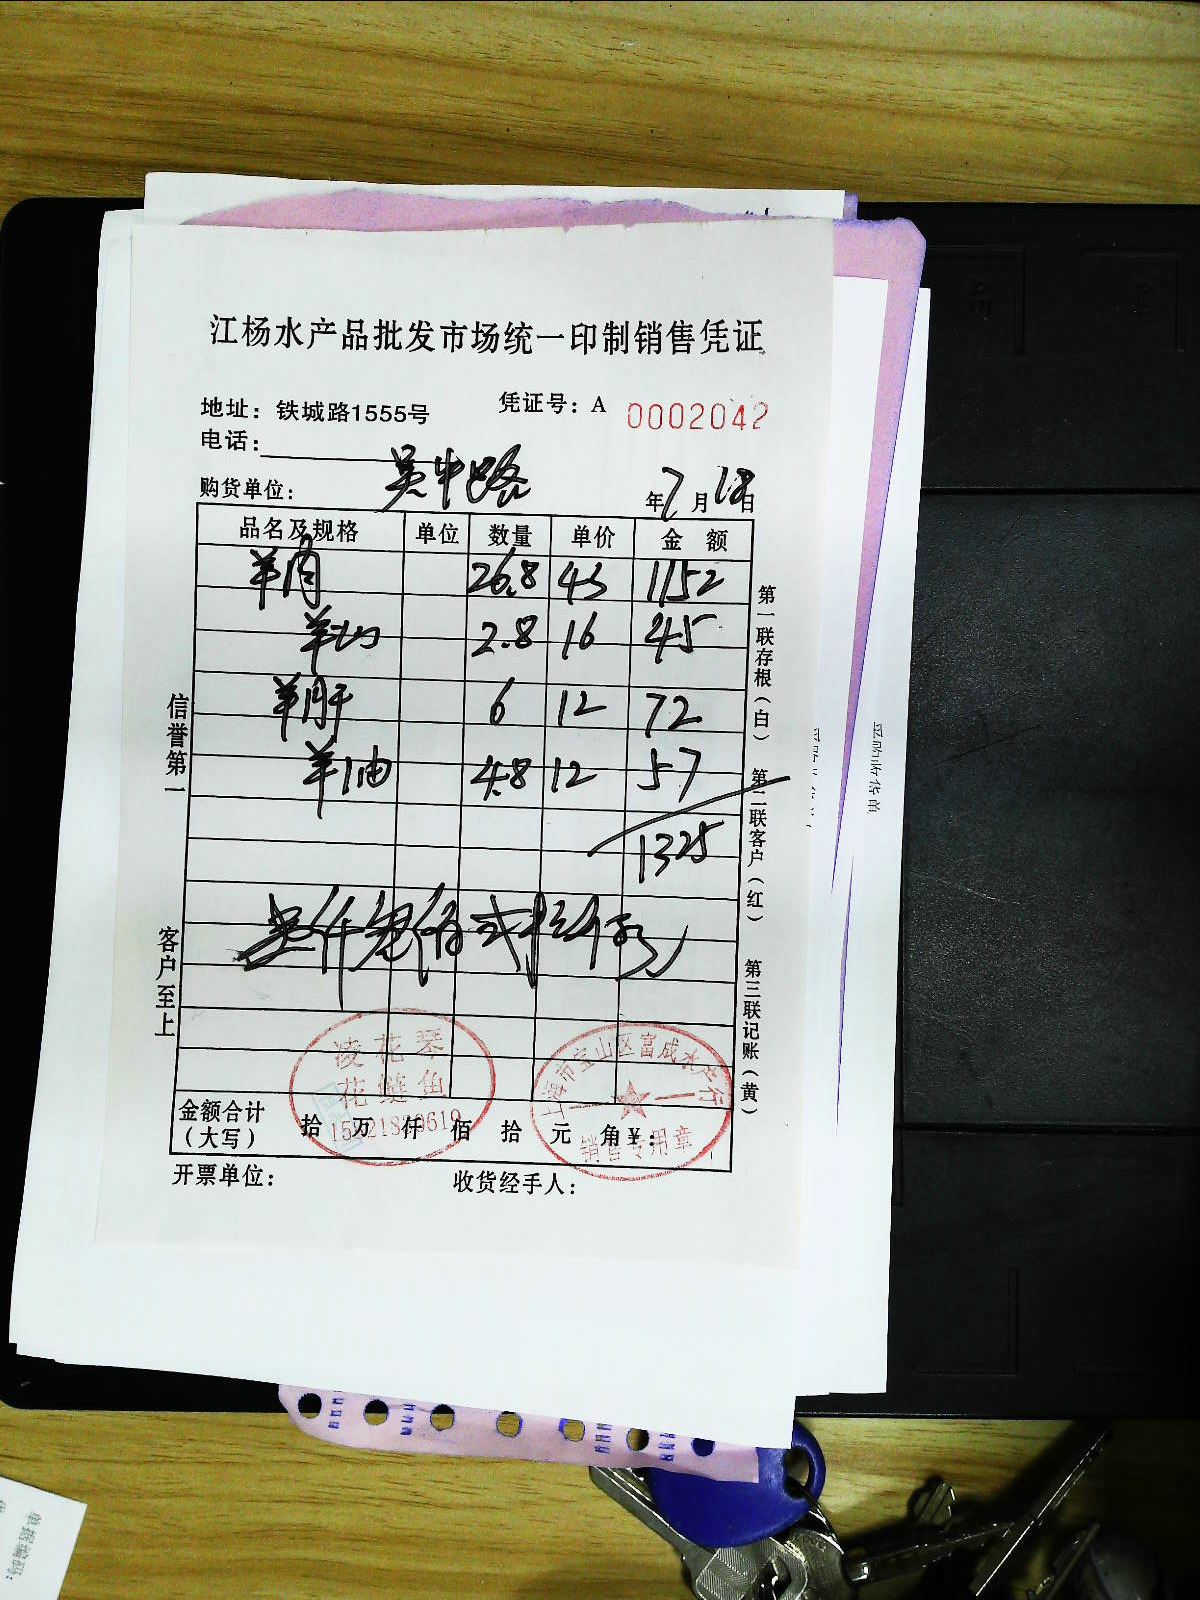 江杨水产品批发市场统一印制销售凭证
地址：铁城路1555号 凭证号：A 0002042
电话：
购货单位：吴中路 年7月18日
品名及规格 单位 数量 单价 金额
羊肉 26.8 43 1152
羊 2.8 16 45
羊肝 6 12 72
羊油 4.8 12 57
1325
仟 佰 贰拾伍
凌花琴
花鲢鱼
上海市宝山区富成水产行
销售专用章
金额合计（大写） 拾 万 仟 佰 拾 元 角¥：
开票单位： 收货经手人：
信誉第一 客户至上
第一联存根（白） 第二联客户（红） 第三联记账（黄）
采购收货单
单据编码：